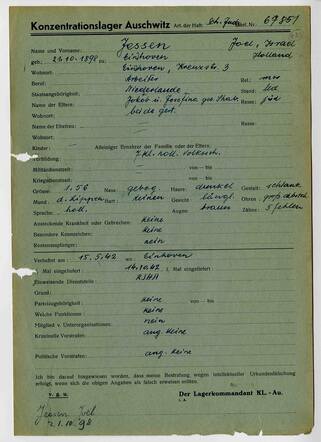 Konzentrationslager Auschwitz Art der Haft: Nr. 67851
Name und Vorname: Jessen Joel, Israel
geb.: 21.10.1898 zu: Einhoven Holland
Wohnort: Einhoven, 3
Beruf: Arbeiter Rel.: mos
Staatsangehörigkeit: Niederlande Stand: led
Name der Eltern: Jakob u. Josefina geb. Rasse: jüd
Wohnort: beide gest.
Name der Ehefrau: — Rasse: —
Wohnort: —
Kinder: — Alleiniger Ernährer der Familie oder der Eltern: —
Vorbildung: 7 kl. holl. Volkssch.
Militärdienstzeit: — von — bis —
Kriegsdienstzeit: — von — bis —
Grösse: 1.56 Nase: gebog. Haare: dunkel Gestalt: schlank
Mund: Bart: keinen Gesicht: längl. Ohren:
Sprache: holl. Augen: braun Zähne: 5 fehlen
Ansteckende Krankheit oder Gebrechen: keine
Besondere Kennzeichen: keine
Rentenempfänger: nein
Verhaftet am: 15.5.42 wo: Einhoven
Mal eingeliefert: 14.10.42 1. Mal eingeliefert:
Einweisende Dienststelle: RSHA
Grund:
Parteizugehörigkeit: keine von — bis —
Welche Funktionen: keine
Mitglied v. Unterorganisationen: nein
Kriminelle Vorstrafen: ang. keine
Politische Vorstrafen: ang. keine
Ich bin darauf hingewiesen worden, dass meine Bestrafung wegen intellektueller Urkundenfälschung
erfolgt, wenn sich die obigen Angaben als falsch erweisen sollten.
v. g. u. Der Lagerkommandant KL.-Au.
I. A.
Jessen Joel
21.10.98